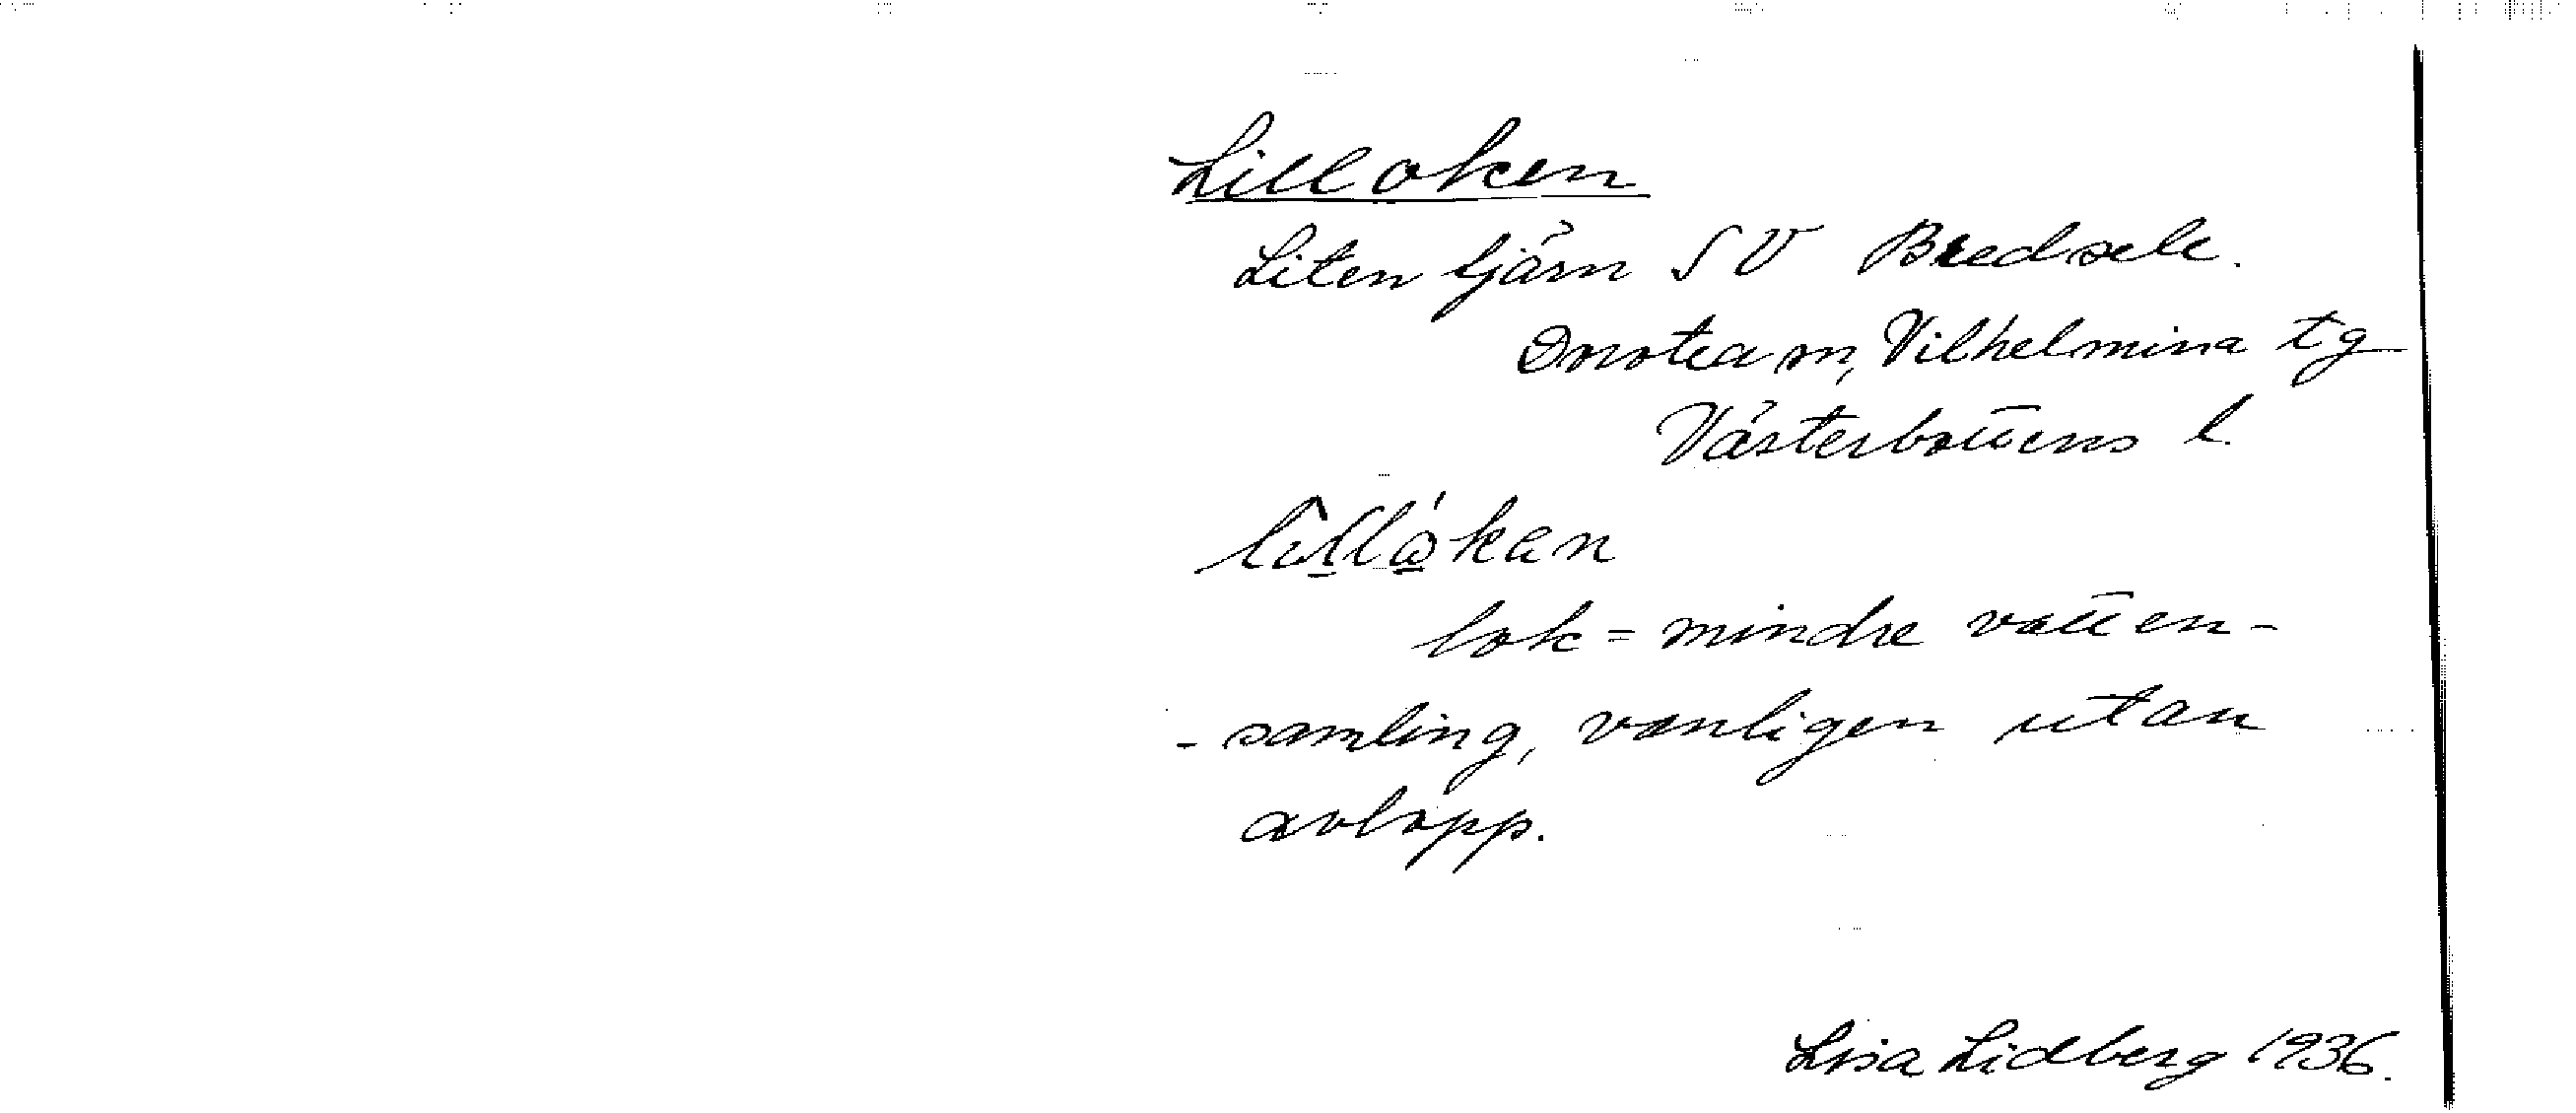 Lilloken
Liten tjärn SV Bredsele.
Dorotea sn, Vilhelmina tg
Västerbottens l.
lok = mindre vatten-
- samling, vanligen utan
avlopp.
Lisa Lidberg 1936.